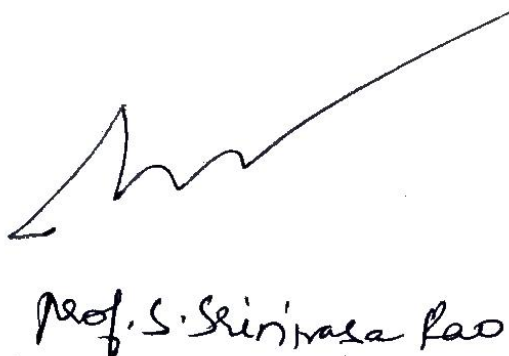 Prof. S. Srinivasa Rao